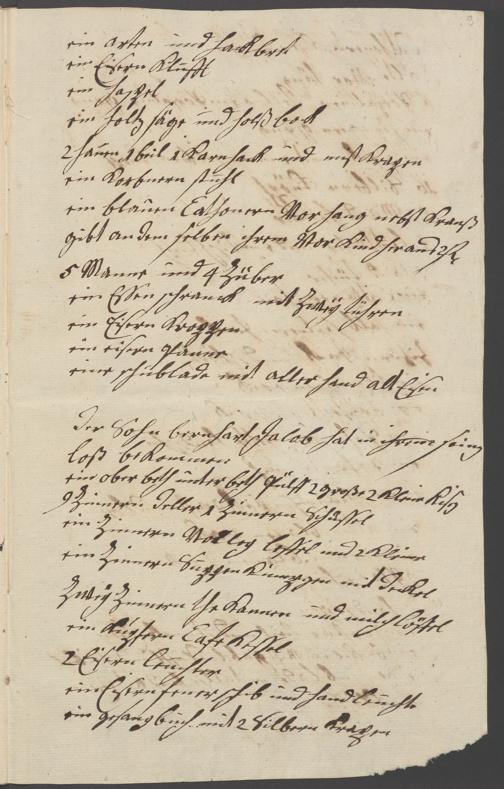 ein arten und hackbret
ein Eisern Klufft
ein haspel
ein holtz säge und holtz bock
2 hauen 1 beil 1 Karnhack und mist Krapen
ein Korbnern stuhl
ein blauen Cathonern Vor hang nebst Krantz
gibt an dem selben ihrem Vor Kind heraus
5 Manne und 4 Züber
ein Essen schranck mit zwey tühren
ein Eisern Kroppen
ein eisern pfanne
eine schublade mit aller hand alt Eisen
Der Sohn bernhart Jacob hat in ihrem seine
loß bekommen
ein ober beth unter beth Pülff 2 große 2 kleine Kiss
9 Zinnern Teller 1 Zinnern Schüssel
ein Zinnern Vorleg leffel und 2 kleine
ein Zinnern Suppen Kümpgen mit deckel
Zwey Zinnern the Kannen und milch löffel
ein Kupfern Cafe Kessel
2 Eisern leuchter
ein Eisern feuer schib und hand leuchte
ein gesang buch mit 2 Silbern Krapen